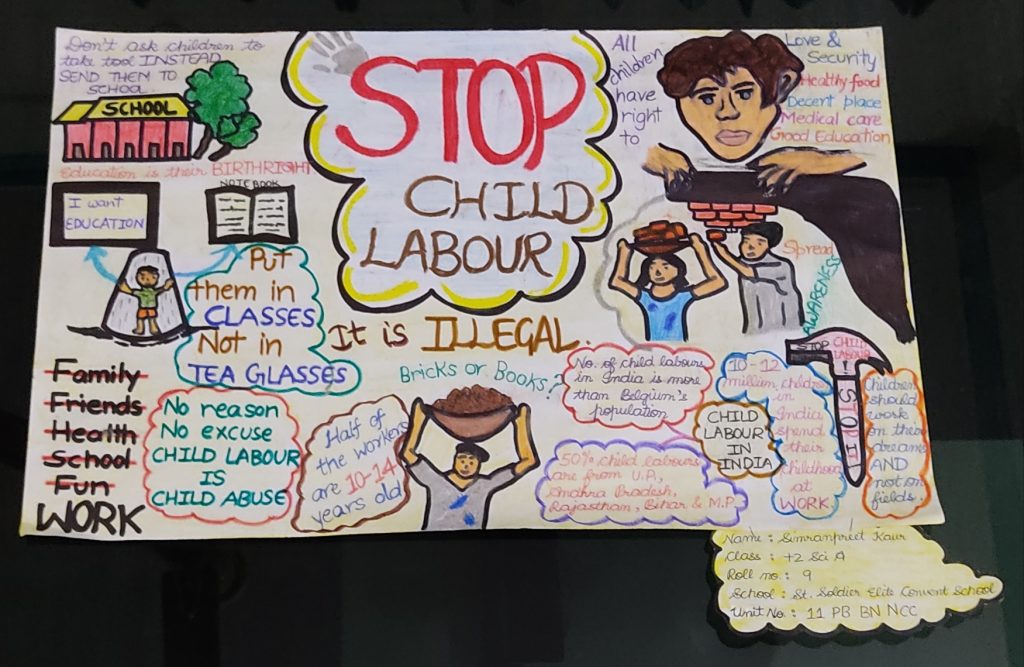 Don't ask children to
take tool INSTEAD
SEND THEM TO
SCHOOL.
SCHOOL
Education is their BIRTHRIGHT
NOTEBOOK
I want
EDUCATION
Put
them in
CLASSES
Not in
TEA GLASSES
STOP
CHILD
LABOUR
It is ILLEGAL.
All
children
have
right
to
Love &
Security
Healthy food
Decent place
Medical care
Good Education
Spread
AWARENESS
Family
Friends
Health
School
Fun
WORK
No reason
No excuse
CHILD LABOUR
IS
CHILD ABUSE
Half of
the workers
are 10-14
years old
Bricks or Books?
No. of child labours
in India is more
than Belgium's
population
50% child labours
are from U.P.,
Andhra Pradesh,
Rajasthan, Bihar & M.P.
CHILD
LABOUR
IN
INDIA
10-12
million children
in
India
spend
their
childhood
at
WORK.
STOP CHILD
LABOUR
!
STOP IT
Children
should
work
on their
dreams
AND
not on
fields.
Name : Simranpreet Kaur
Class : +2 Sci A
Roll no. : 9
School : St. Soldier Elite Convent School
Unit No. : 11 PB BN NCC